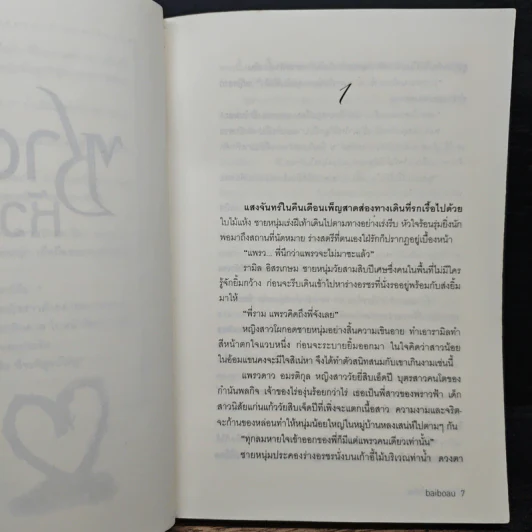 ชาด
หัว
1
แสงจันทร์ในคืนเดือนเพ็ญสาดส่องทางเดินที่รกเรื้อไปด้วย
ใบไม้แห้ง ชายหนุ่มเร่งฝีเท้าเดินไปตามทางอย่างเร่งรีบ หัวใจร้อนรุ่มยิ่งนัก
พอมาถึงสถานที่นัดหมาย ร่างสตรีที่ตนเองใฝ่รักก็ปรากฏอยู่เบื้องหน้า
"แพรว... พี่นึกว่าแพรวจะไม่มาซะแล้ว"
รามิล อิสรเกษม ชายหนุ่มวัยสามสิบปีเศษซึ่งคนในพื้นที่ไม่มีใคร
รู้จักยิ้มกว้าง ก่อนจะรีบเดินเข้าไปหาร่างอรชรที่นั่งรออยู่พร้อมกับส่งยิ้ม
มาให้
"พี่ราม แพรวคิดถึงพี่จังเลย"
หญิงสาวโผกอดชายหนุ่มอย่างสิ้นความเขินอาย ทำเอารามิลทำ
สีหน้าตกใจแวบหนึ่ง ก่อนจะระบายยิ้มออกมา ในใจคิดว่าสาวน้อย
ในอ้อมแขนคงจะมีใจสิเน่หา จึงได้ทำตัวสนิทสนมกับเขาเกินงามเช่นนี้
แพรวดาว อมรติกุล หญิงสาววัยยี่สิบเอ็ดปี บุตรสาวคนโตของ
กำนันพลกิจ เจ้าของไร่องุ่นร้อยกว่าไร่ เธอเป็นพี่สาวของพราวฟ้า เด็ก
สาวนิสัยแก่นแก้ววัยสิบเจ็ดปีที่เพิ่งจะแตกเนื้อสาว ความงามและจริต-
จะก้านของหล่อนทำให้หนุ่มน้อยใหญ่ในหมู่บ้านหลงเสน่ห์ไปตามๆ กัน
"ทุกลมหายใจเข้าออกของพี่ก็มีแต่แพรวคนเดียวเท่านั้น"
ชายหนุ่มประคองร่างอรชรนั่งบนเก้าอี้ไม้บริเวณท่าน้ำ ดวงตา
baiboau 7